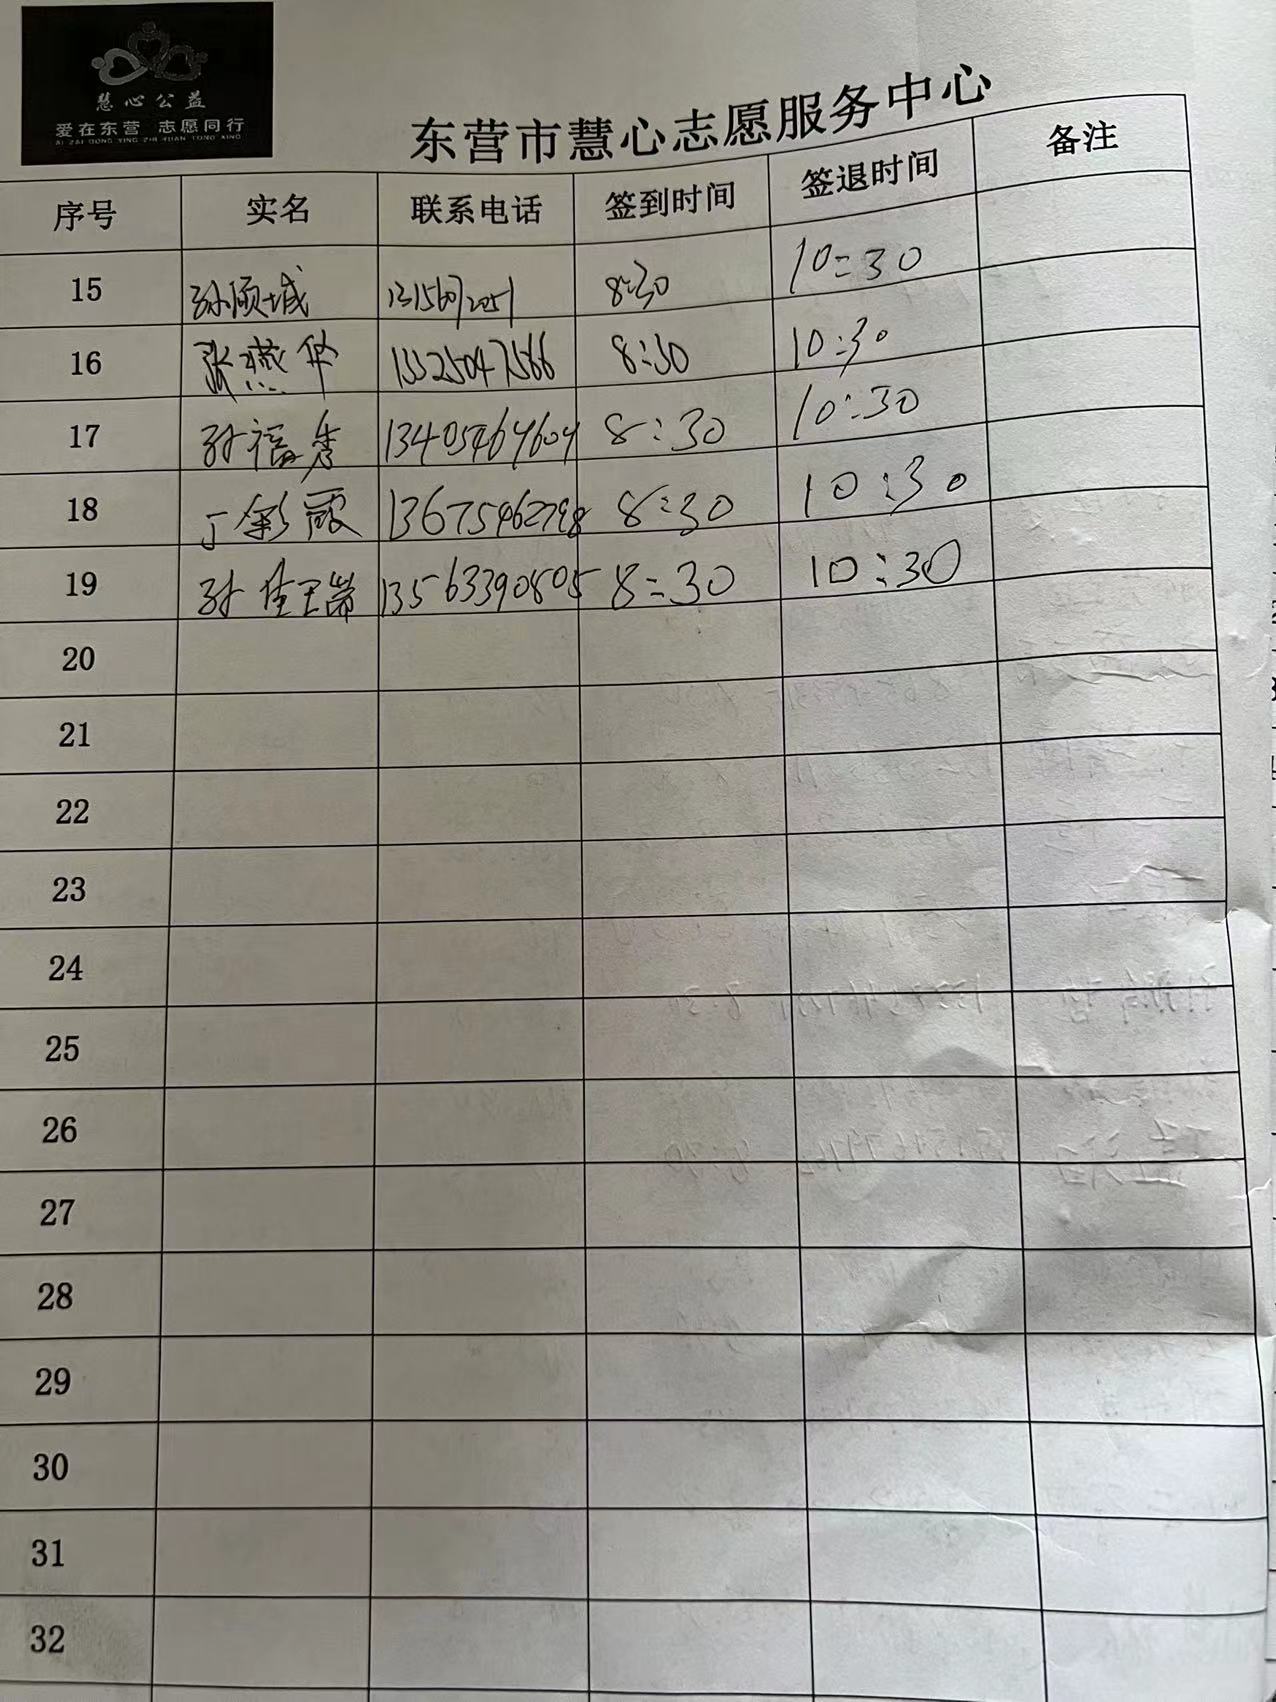 慧心公益
爱在东营 志愿同行
AI ZAI DONG YING ZHI YUAN TONG XING
东营市慧心志愿服务中心
序号 实名 联系电话 签到时间 签退时间 备注
15 孙倾城 8:30 10:30
16 张燕华 8:30 10:30
17 孙福秀 13405464604 8:30 10:30
18 丁彩霞 13675462798 8:30 10:30
19 孙佳瑞 13563390805 8:30 10:30
20
21
22
23
24
25
26
27
28
29
30
31
32